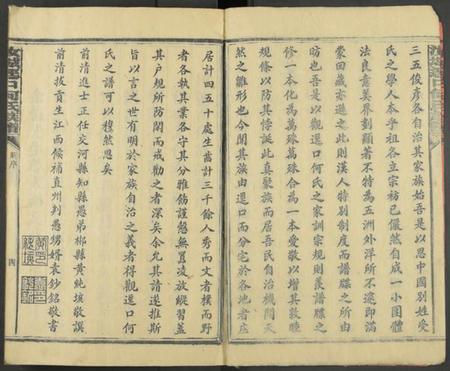 三五俊彥各自治其家族始吾是以思中國別姓受
氏之學人本乎祖各立宗祊已儼然自成一小團體
法良意美界劃顯著不特為五洲外洋所不逮即滿
蒙回藏亦遜之此則漢人特別制度而譜牒之所由
昉也吾是以觀邑口何氏之家訓宗規則美譜牒之
修一本化為萬殊萬殊合為一本愛敬以增其敦睦
規條以防其悖誕此真聚族而居吾民自治機關天
然之雛形也今聞其族由邑口而分宅於各地者戶
居計四五十處生齒計三千餘人秀而文者樸而野
者各執其業各守其分雅飭謹愨無囂凌放縱習蓋
其戶規所防閑而戒勸之者深矣令允其請遂推斯
旨以言之世有明於家族自治之義者得觀邑口何
氏之譜可以穆然思矣
前清進士正任交河縣知縣愚弟郴縣黃純垓敬譔
前清拔貢生江西候補直州判愚甥婿袁鈔銘敬書
序
四